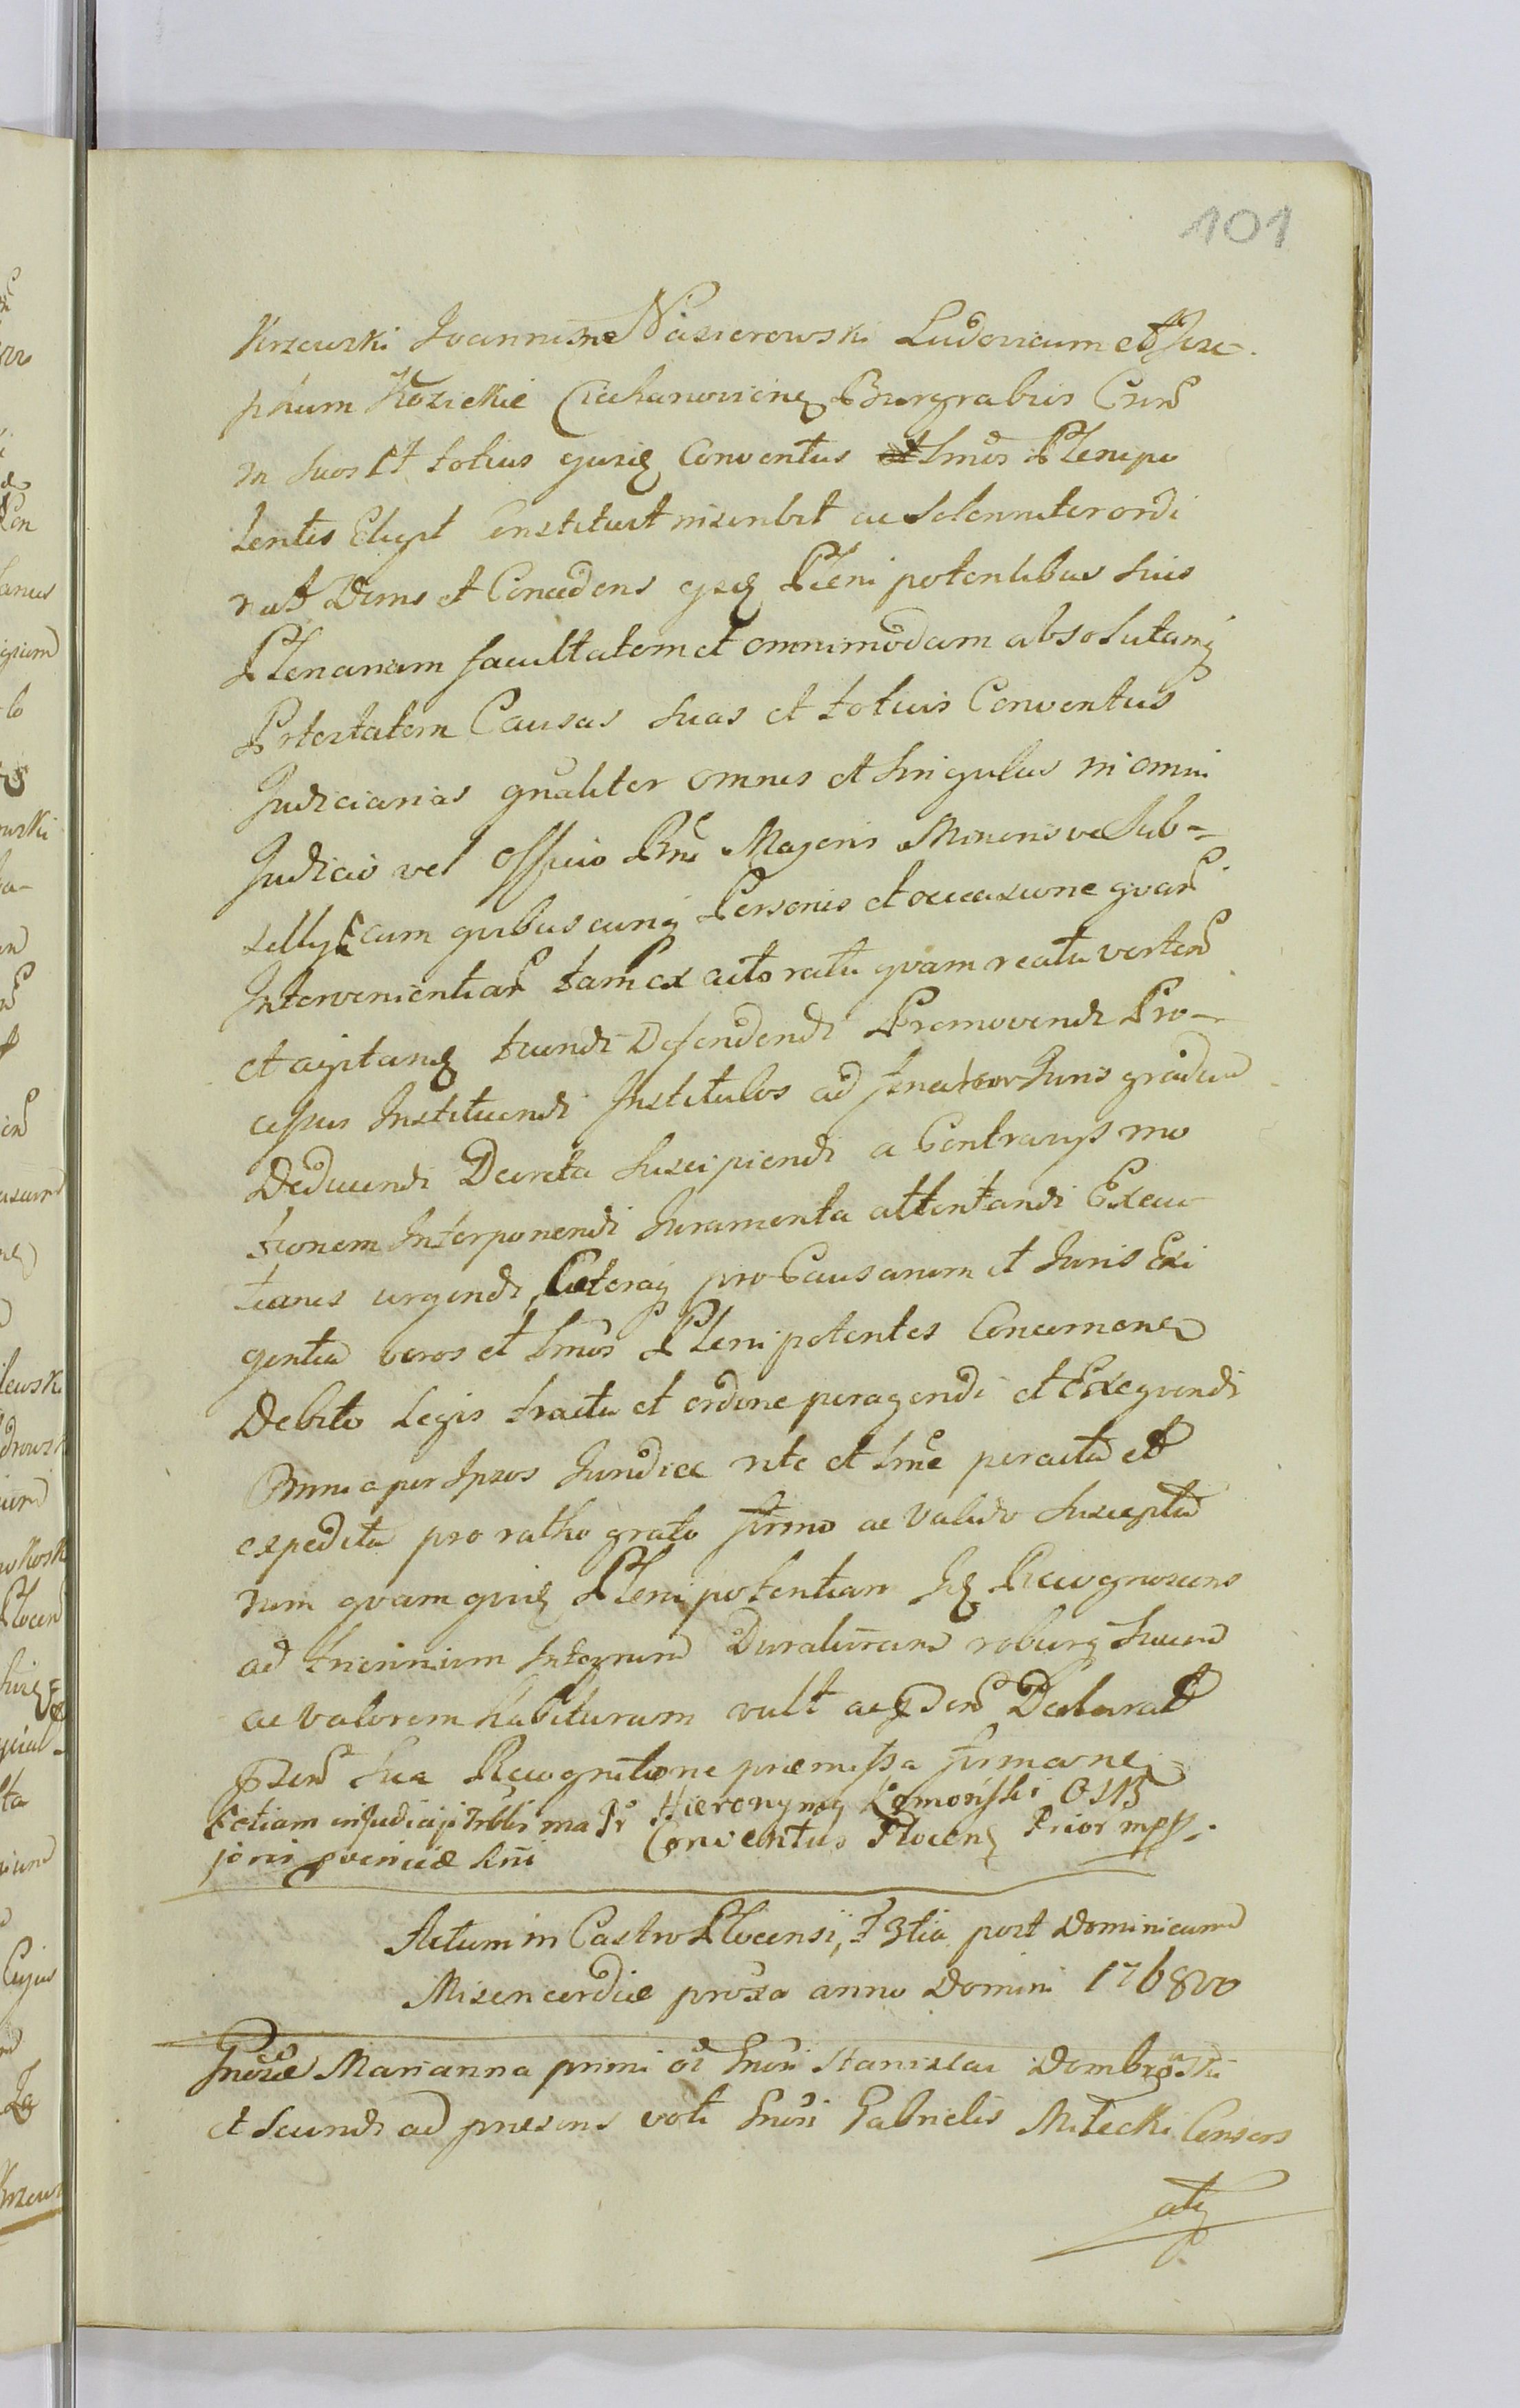 101
Krzewski Joannem Nasierowski Ludovicum et Jose-
phum Kozickie Ciechanovien Burgrabios Cren
in suos et totius gnris Conventus et lmos Plenipo
tentes Elegit Constituit inscribit ac solenniter ordi
nat Dans et Concedens ijsq Plenipotentibus suis
Plenariam facultatem et omnimodam absolutamq
Potestatem Causas suas et totius Conventus
Judiciarias gnaliter omnes et singulas in omni
Judicio vel Officio Rni Majoris Minorisve Sub-
sellij cum quibuscunq Personis et occasione quar
Intervenientiar tam ex actoratu quam reatu verten
et agitan tuendi Defendendi Promovendi Pro-
cessus Instituendi Institutos ad Juris gradum
Deducendi Decreta suscipiendi a Contrarijs mo
tionem Interponendi Juramenta attentandi Execu
tiones urgendi, Coeteraq pro Causarum et Juris Exi
gentia veros et lmos Plenipotentes Concernen
Debito Legis tractu et ordine peragendi et Exequendi
Omnia per Ipsos Juridice rite et lme peracta et
expedita pro ratho grato firmo ac valido suscepta
rum quam quid Plenipotentiam se Recognoscens
ad triennium Integrum Duraturam roburq suum
ac valorem habituram vult ac Declarat
psen sua Recognitione praemissa firma ne
Etiam in Judicijs Trblis ma Pr Hieronymq Łomoński O S B
joris pvinciae Rni Conventus Plocen Prior mpp.
Actum in Castro Plocensi, f 3tia post Dominicam
Misericordiae proxa anno Domini 1768vo
Gnosa Marianna primi Gnosi Stanislai Dombrowski
et secundi ad praesens voti Gnosi Gabrielis Milecki Consors
atq